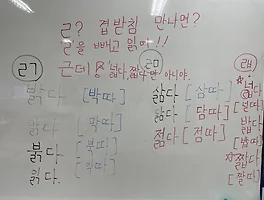 ㄹ? 겹받침 만나면?
ㄹ을 빼고 읽어!!
근데 넓다, 짧다 만 아니야.
ㄺ
밝다 [박따]
맑다 [막따]
붉다 [북따]
읽다. [익따]
ㄻ
삶다 [삼따]
닮다 [담따]
젊다 [점따]
ㄼ
넓다
[널따]
밟다
[밥따]
짧다
[짤따]